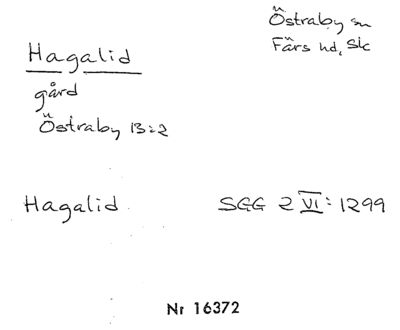 Östraby sn
Färs hd, Sk
Hagalid
gård
Östraby 13:2
Hagalid SGG 2 VI: 1299
Nr 16372